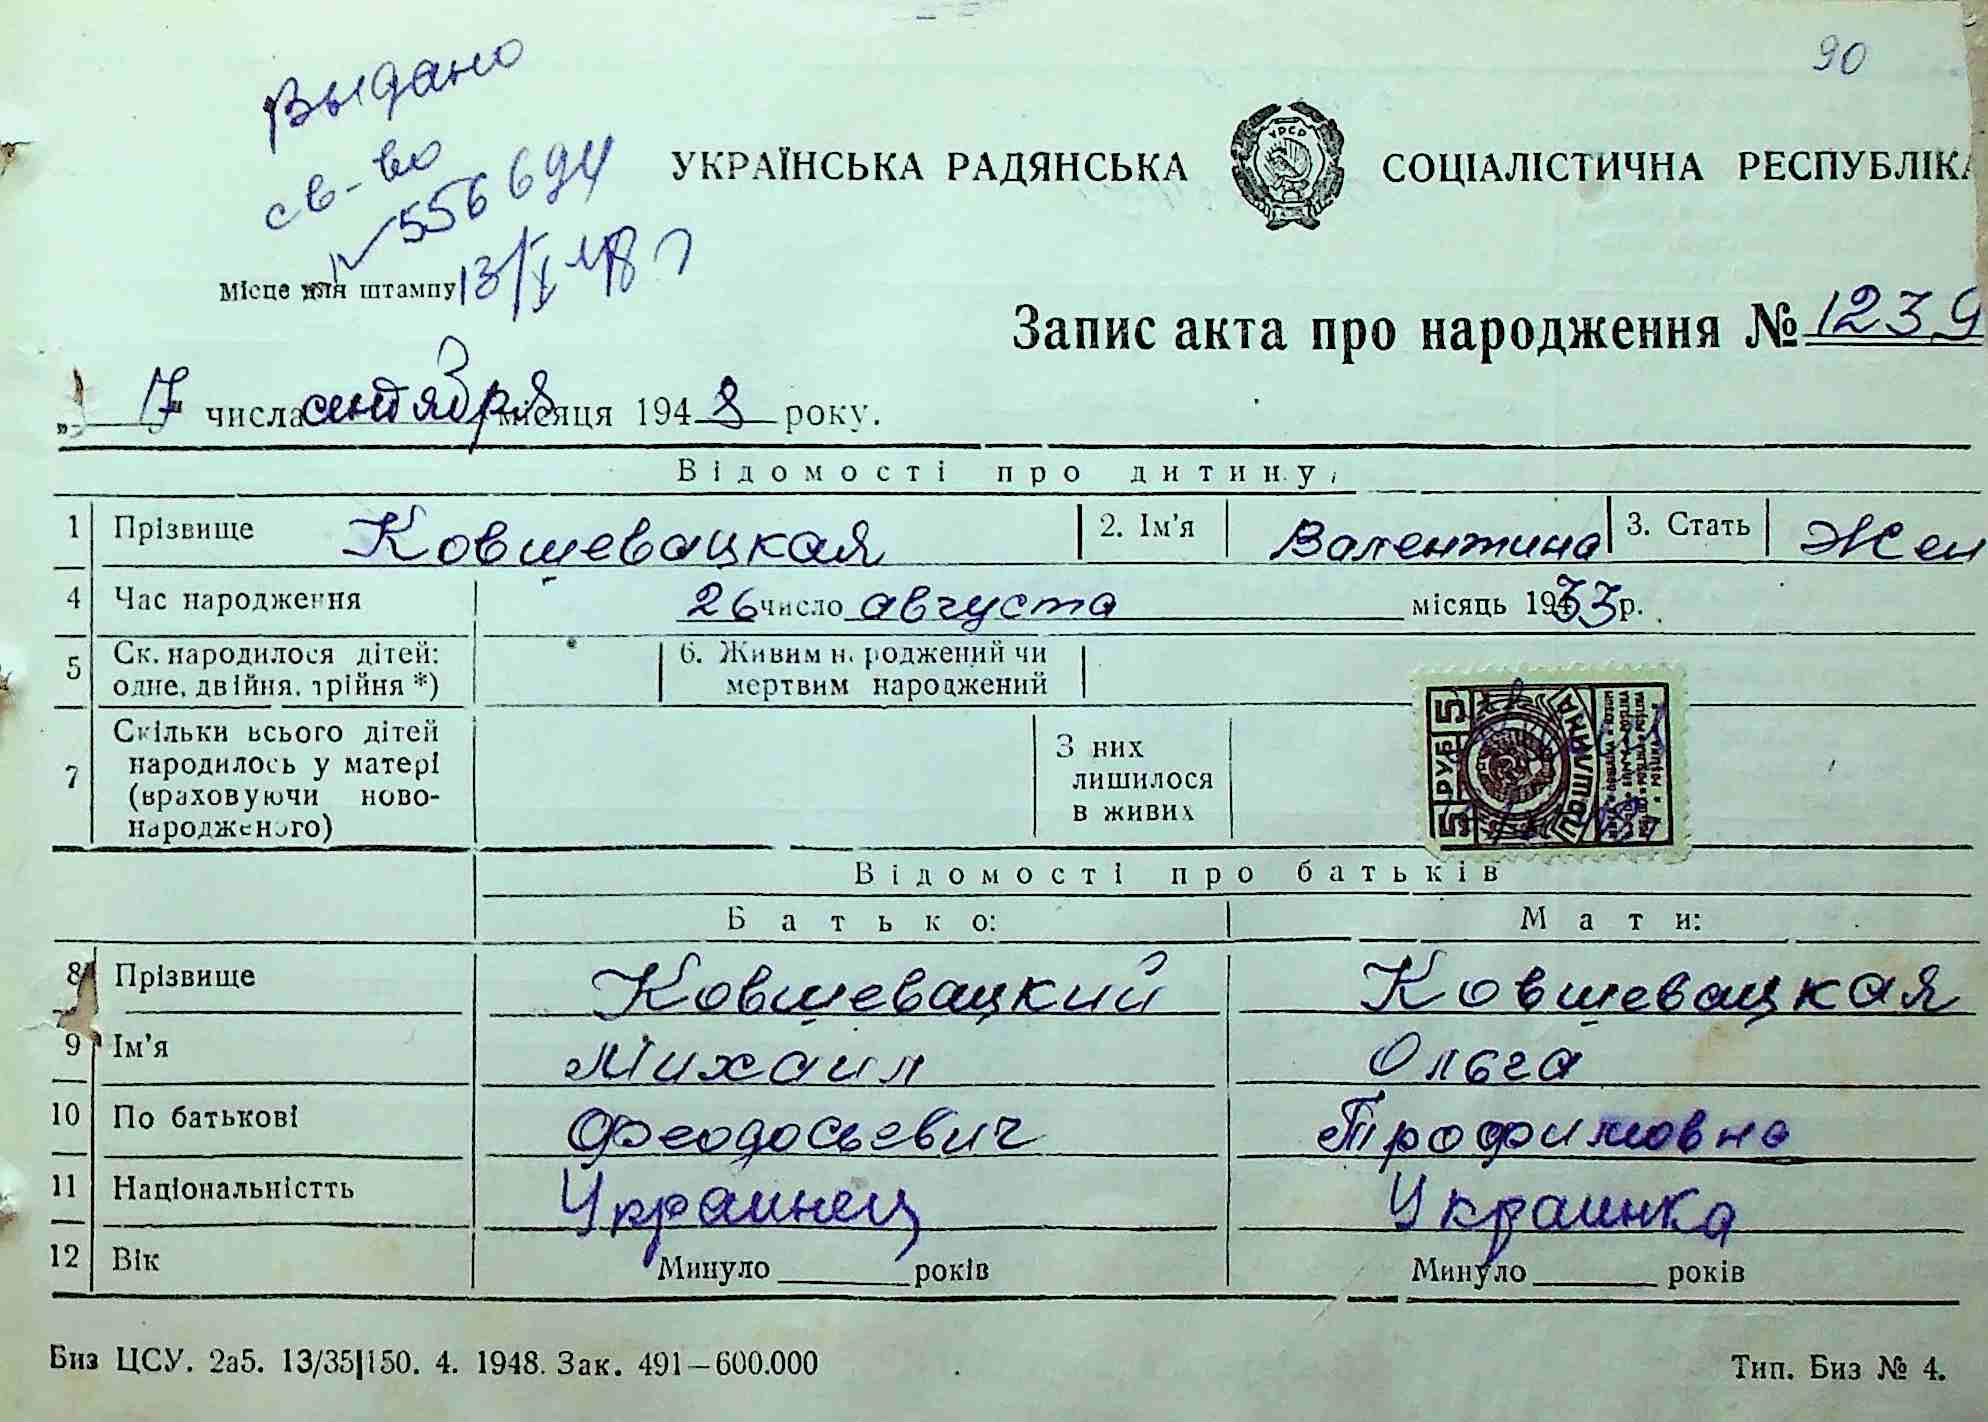 90
Выдано
св-во
№ 556694
УКРАЇНСЬКА РАДЯНСЬКА УРСР СОЦІАЛІСТИЧНА РЕСПУБЛІКА
Місце для штампу 13/X 48 г
Запис акта про народження № 1239
„ 17 " числа сентября місяця 1948 року.
Відомості про дитину
1 Прізвище Ковшевацкая 2. Ім’я Валентина 3. Стать Жен
4 Час народження 26 число августа місяць 1933 р.
5 Ск. народилося дітей: одне, двійня, трійня *) 6. Живим народжений чи мертвим народжений
7 Скільки всього дітей народилось у матері (враховуючи ново-народженого) З них лишилося в живих
5 РУБ 5
ПОШЛИНА
Відомості про батьків
Батько: Мати:
8 Прізвище Ковшевацкий Ковшевацкая
9 Ім’я Михаил Ольга
10 По батькові Феодосьевич Трофимовна
11 Національністть Украинец Украинка
12 Вік Минуло ______ років Минуло ______ років
Биз ЦСУ. 2а5. 13/35|150. 4. 1948. Зак. 491—600.000 Тип. Биз № 4.